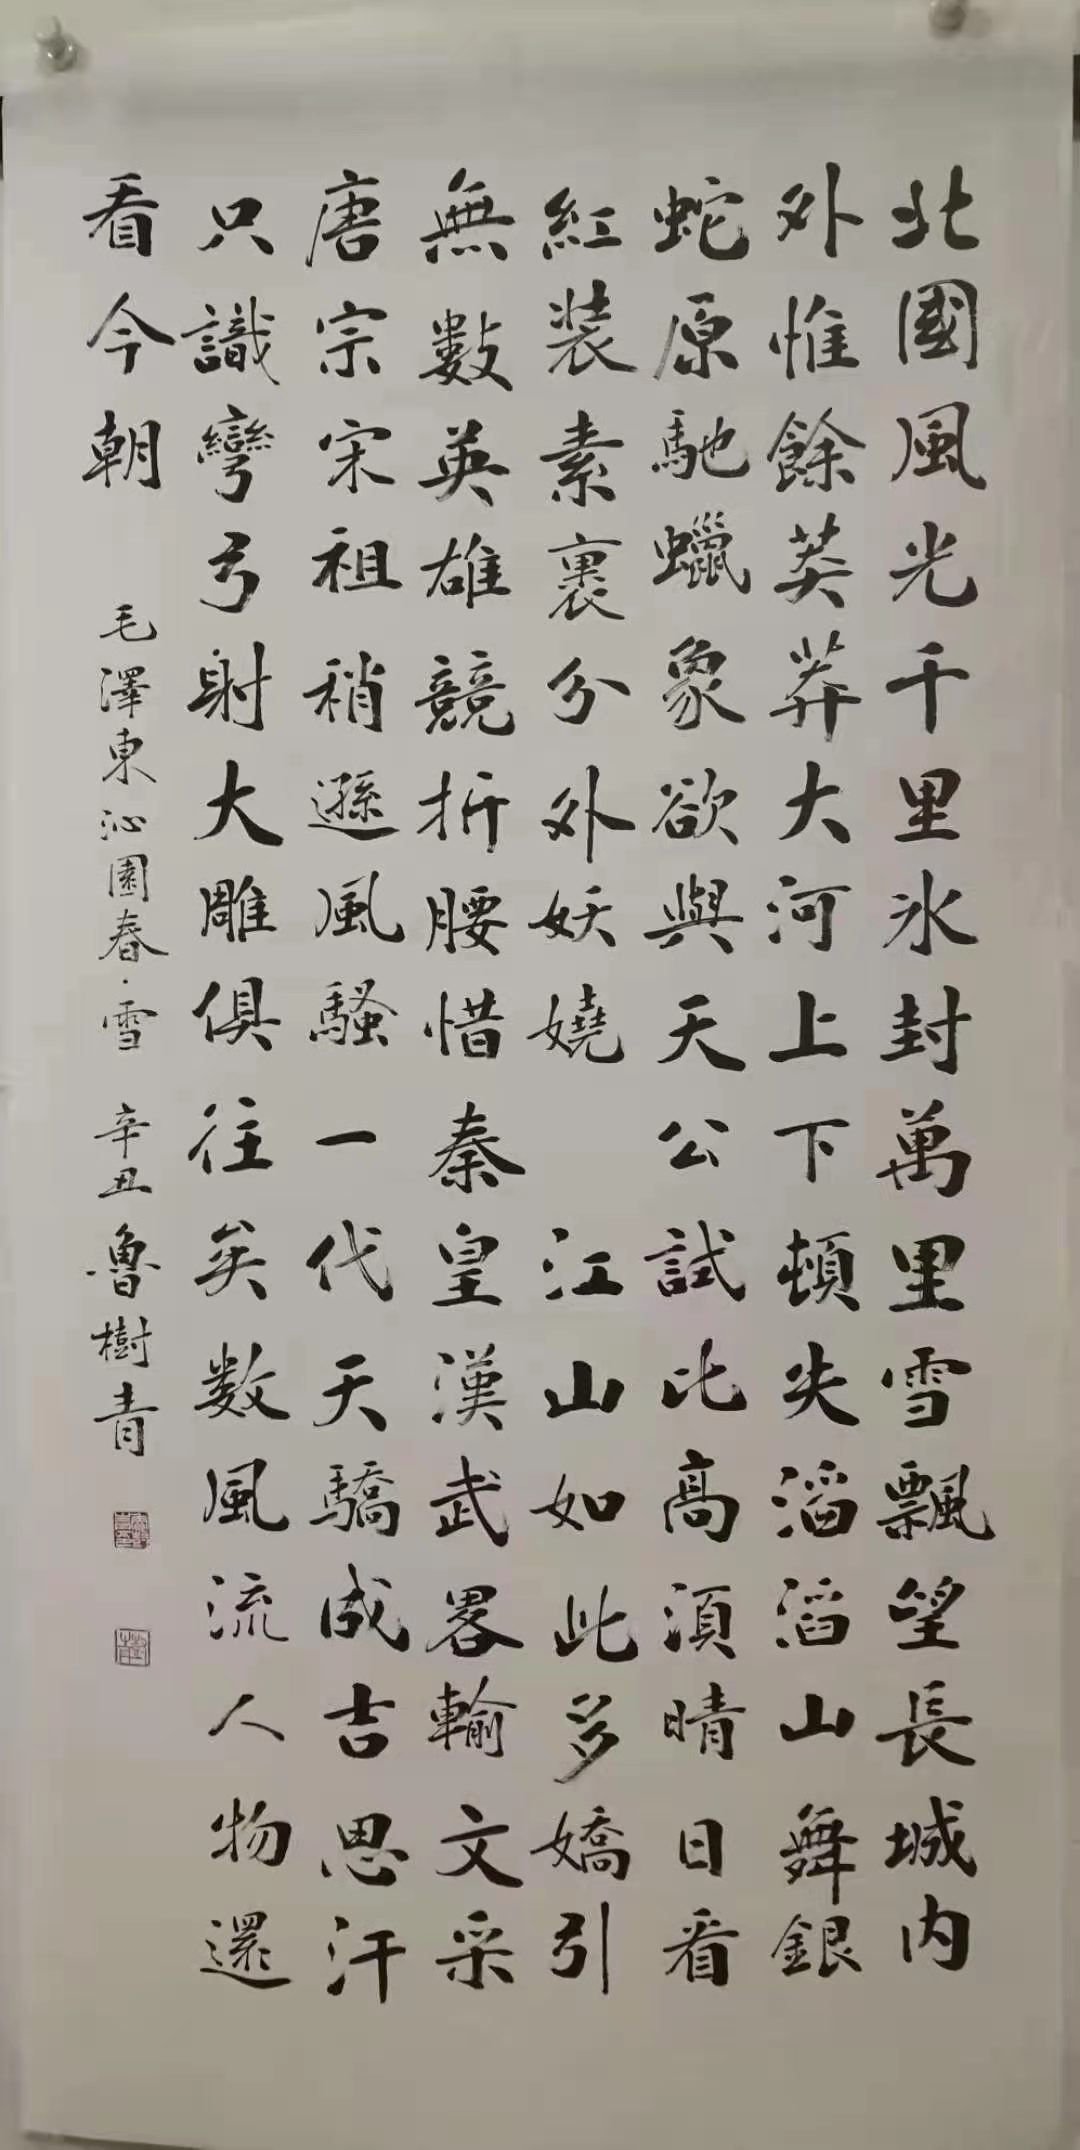 北國風光千里氷封萬里雪飄望長城内
外惟餘莽莽大河上下頓失滔滔山舞銀
蛇原馳蠟象欲與天公試比高須晴日看
紅装素裹分外妖嬈 江山如此多嬌引
無數英雄競折腰惜秦皇漢武畧輸文采
唐宗宋祖稍遜風騷一代天驕成吉思汗
只識彎弓射大雕俱往矣数風流人物還
看今朝
毛澤東沁園春·雪 辛丑魯樹青